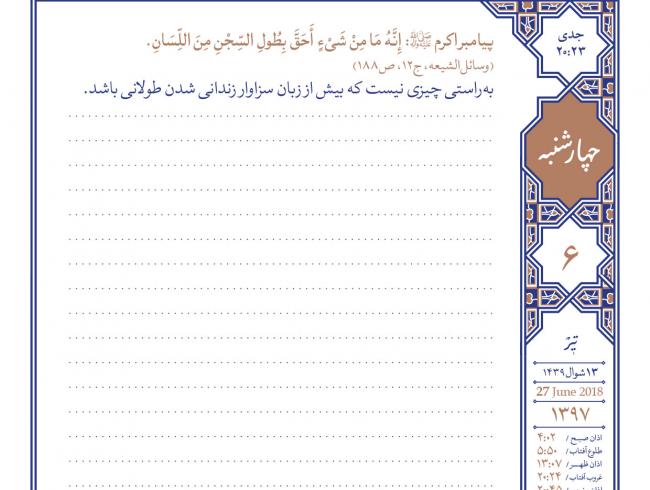 پیامبراکرم ﷺ: إِنَّهُ مَا مِنْ شَیْءٍ أَحَقَّ بِطُولِ السِّجْنِ مِنَ اللِّسَانِ.
(وسائل‌الشیعه، ج۱۲، ص۱۸۸)
به‌راستی چیزی نیست که بیش از زبان سزاوار زندانی شدن طولانی باشد.
جدی
۲۰:۲۳
چهارشنبه
۶
تیر
۱۳ شوال ۱۴۳۹
27 June 2018
۱۳۹۷
اذان صبح / ۴:۰۲
طلوع آفتاب / ۵:۵۰
اذان ظهر / ۱۳:۰۷
غروب آفتاب / ۲۰:۲۴
۲۰:۴۵